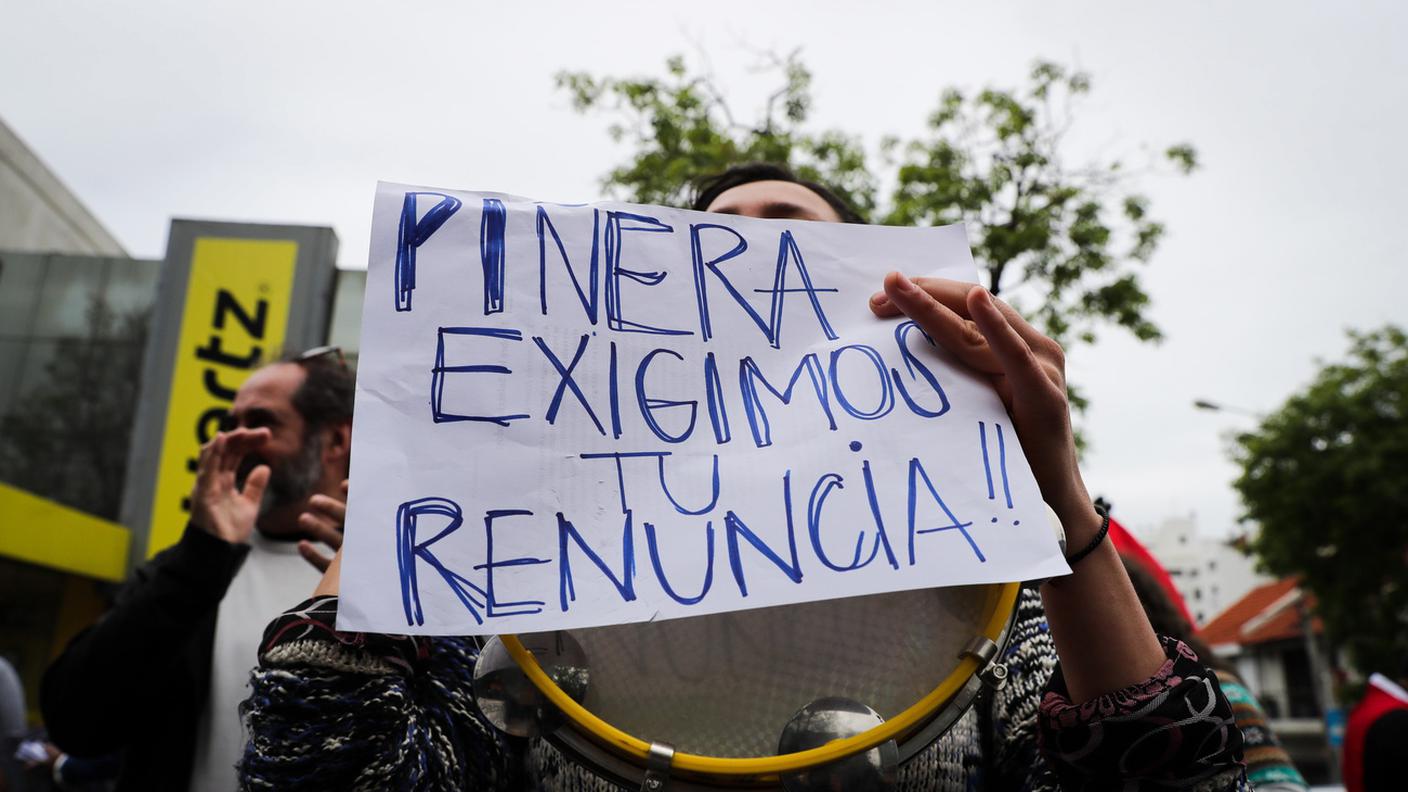 PIÑERA
EXIGIMOS
TU
RENUNCiA!!
Hertz